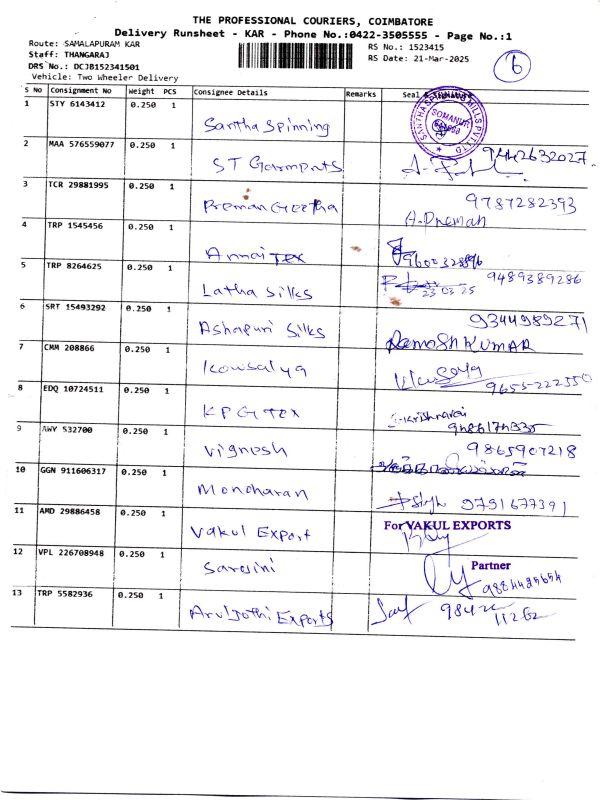 THE PROFESSIONAL COURIERS, COIMBATORE
Delivery Runsheet - KAR - Phone No.:0422-3505555 - Page No.:1
Route: SAMALAPURAM KAR
RS No.: 1523415
Staff: THANGARAJ
RS Date: 21-Mar-2025
DRS No.: DCJB152341501
6
Vehicle: Two Wheeler Delivery
S No Consignment No Weight PCS Consignee Details Remarks Seal
1 STY 6143412 0.250 1 Santha Spinning SOMANUR
2 MAA 576559077 0.250 1 ST Garments 9442632027
3 TCR 29881995 0.250 1 Preman Geetha 9787282393
A. Preman
4 TRP 1545456 0.250 1 Annai Tex 9600328896
5 TRP 8264625 0.250 1 Latha Silks 9489389286
23 03 25
6 SRT 15493292 0.250 1 Ashapuri Silks 9344989271
RAMESH KUMAR
7 CMM 208866 0.250 1 Kowsalya 9655222550
8 EDQ 10724511 0.250 1 KPG Tex
9 AWY 532700 0.250 1 Vignesh 9865907218
10 GGN 911606317 0.250 1 Manoharan 9791677391
11 AMD 29886458 0.250 1 Vakul Export For VAKUL EXPORTS
12 VPL 226708948 0.250 1 Sarojini Partner
13 TRP 5582936 0.250 1 Aruljothi Exports 98422
11262